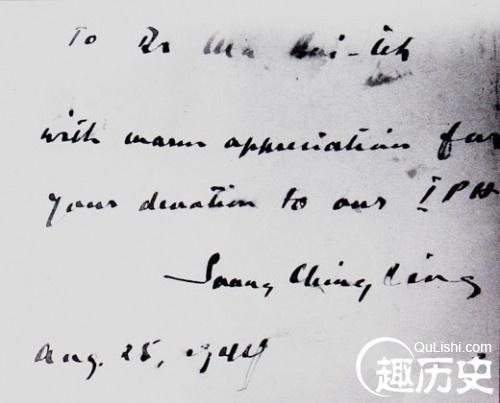 To Dr Ma Hai-teh
with warm appreciation for
your devotion to our IPH
Soong Ching Ling
Aug. 25, 1944
QuLishi.com
趣历史